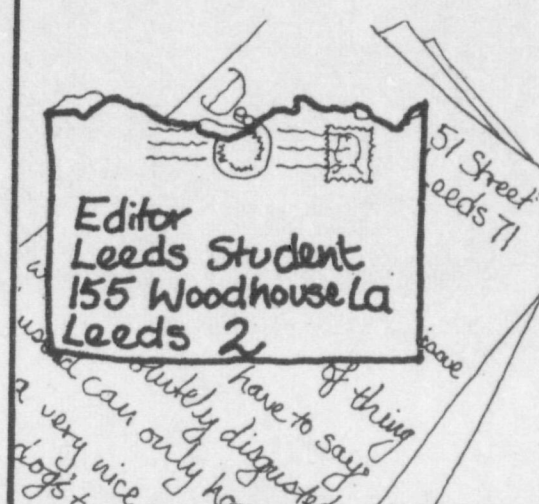 Dea
51 Street
Leeds 71
Editor
Leeds Student
155 Woodhouse La
Leeds 2
of thing
have to say
absolutely disgusted
can only
a very nice
dog's